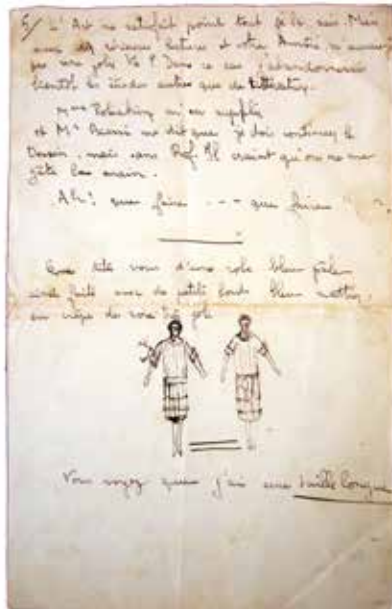 5/ L'Art ne satisfait point tout je le sais. Mais
avec des sérieuses lectures et votre Amitié n'aurais
pas une jolie Vie ? Dans ce cas j'abandonnerais
bientôt les études autres que de littérature.
Mme m'en supplie
et Mr me dit que je dois continuer le
Dessin, mais sans Prof. Il craint qu'on ne me
gâte la main.
Ah ! que faire - - - que faire
Que dites vous d'une robe bleu pâle
ainsi faite avec de petits bords bleu
en crêpe de soie très joli
Vous voyez que j'ai une taille longue